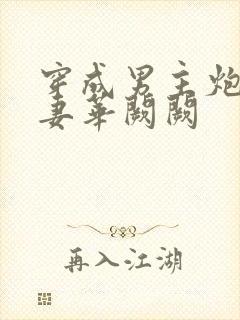 穿成男主炮
妻华阙阙
再入江湖